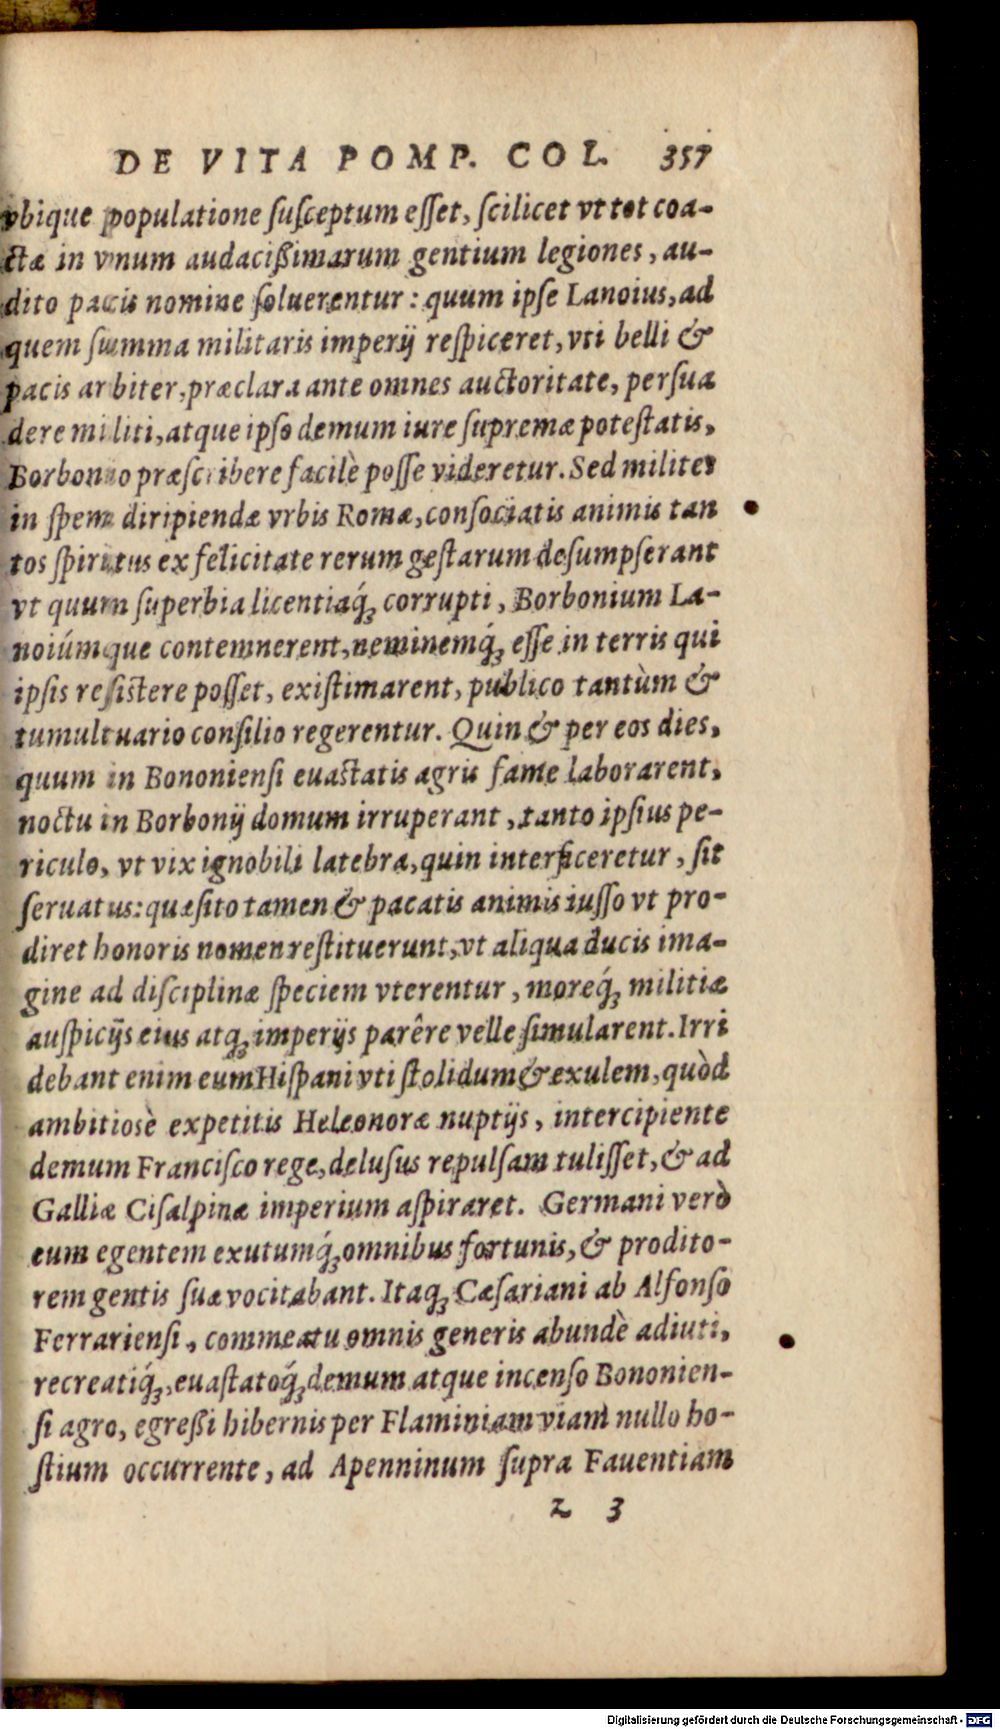 DE VITA POMP. COL. 357
vbique populatione ſuſceptum eſſet, ſcilicet vt tot coa-
ctæ in vnum audacißimarum gentium legiones, au-
dito pacis nomine ſoluerentur: quum ipſe Lanoius, ad
quem ſumma militaris imperij reſpiceret, vti belli &
pacis arbiter, præclara ante omnes auctoritate, perſua
dere militi, atque ipſo demum iure ſupremæ poteſtatis,
Borbonio præſcribere facilè poſſe videretur. Sed milites
in ſpem diripiendæ vrbis Romæ, conſociatis animis tan
tos ſpiritus ex felicitate rerum geſtarum deſumpſerant
vt quum ſuperbia licentiaq́; corrupti, Borbonium La-
noiúmque contemnerent, neminemq́; eſſe in terris qui
ipſis reſiſtere poſſet, exiſtimarent, publico tantùm &
tumultuario conſilio regerentur. Quin & per eos dies,
quum in Bononienſi euaſtatis agris fame laborarent,
noctu in Borbonij domum irruperant, tanto ipſius pe-
riculo, vt vix ignobili latebra, quin interficeretur, ſit
ſeruatus: quæſito tamen & pacatis animis iuſſo vt pro-
diret honoris nomen reſtituerunt, vt aliqua ducis ima-
gine ad diſciplinæ ſpeciem vterentur, moreq́; militiæ
auſpicijs eius atq; imperijs parêre velle ſimularent. Irri
debant enim eum Hiſpani vti ſtolidum & exulem, quòd
ambitiosè expetitis Heleonoræ nuptijs, intercipiente
demum Franciſco rege, deluſus repulſam tuliſſet, & ad
Galliæ Ciſalpinæ imperium aſpiraret. Germani verò
eum egentem exutumq́; omnibus fortunis, & prodito-
rem gentis ſuæ vocitabant. Itaq; Cæſariani ab Alfonſo
Ferrarienſi, commeatu omnis generis abundè adiuti,
recreatiq́;, euaſtatoq́; demum atque incenſo Bononien-
ſi agro, egreßi hibernis per Flaminiam viam nullo ho-
ſtium occurrente, ad Apenninum ſupra Fauentiam
z 3
Digitalisierung gefördert durch die Deutsche Forschungsgemeinschaft - DFG